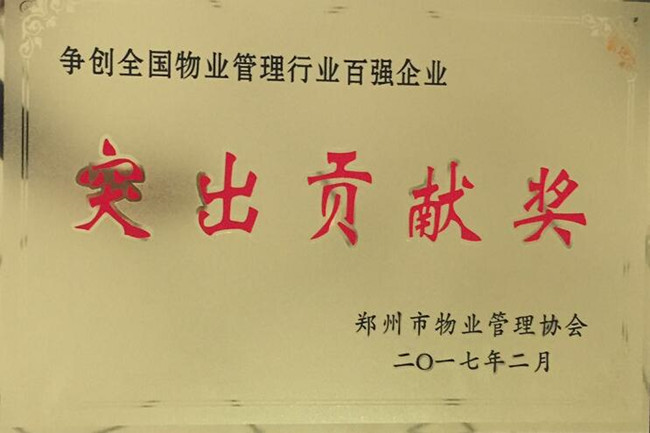 争创全国物业管理行业百强企业
突出贡献奖
郑州市物业管理协会
二〇一七年二月